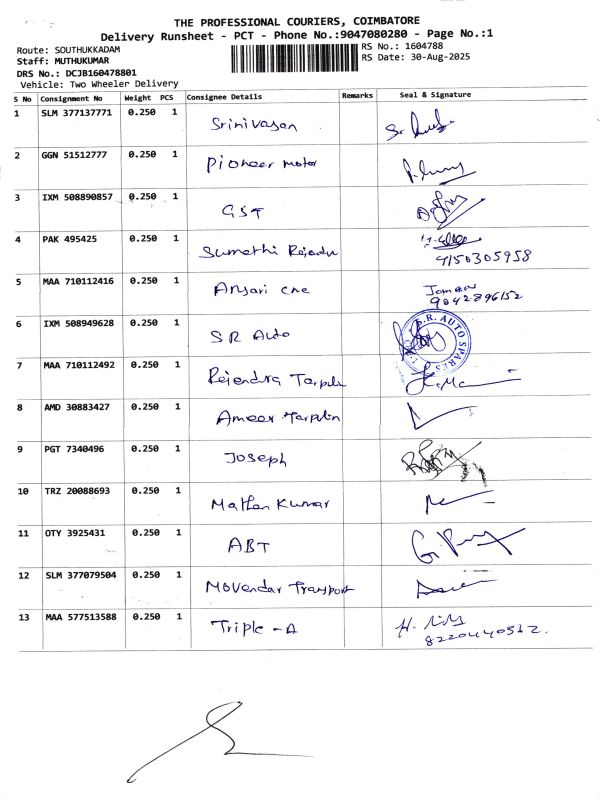 THE PROFESSIONAL COURIERS, COIMBATORE
Delivery Runsheet - PCT - Phone No.:9047080280 - Page No.:1
Route: SOUTHUKKADAM
Staff: MUTHUKUMAR
DRS No.: DCJB160478801
Vehicle: Two Wheeler Delivery
RS No.: 1604788
RS Date: 30-Aug-2025
S No Consignment No Weight PCS Consignee Details Remarks Seal & Signature
1 SLM 377137771 0.250 1 Srinivasan
2 GGN 51512777 0.250 1 Pioneer motor
3 IXM 508890857 0.250 1 GST
4 PAK 495425 0.250 1 Sumathi
9150305958
5 MAA 710112416 0.250 1 Ansari
9042896152
6 IXM 508949628 0.250 1 SR Auto
S.R. AUTO SPARES
7 MAA 710112492 0.250 1 Rajendra Tarpulin
8 AMD 30883427 0.250 1 Ameer Tarpulin
9 PGT 7340496 0.250 1 Joseph
10 TRZ 20088693 0.250 1 Mathan Kumar
11 OTY 3925431 0.250 1 ABT
12 SLM 377079504 0.250 1 Movendar Transport
13 MAA 577513588 0.250 1 Triple -A
8220440562.